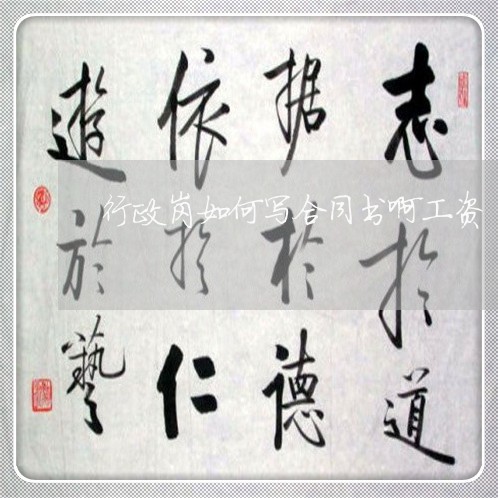 志於道
据於德
依於仁
遊於藝
行政岗如何写合同书啊工资